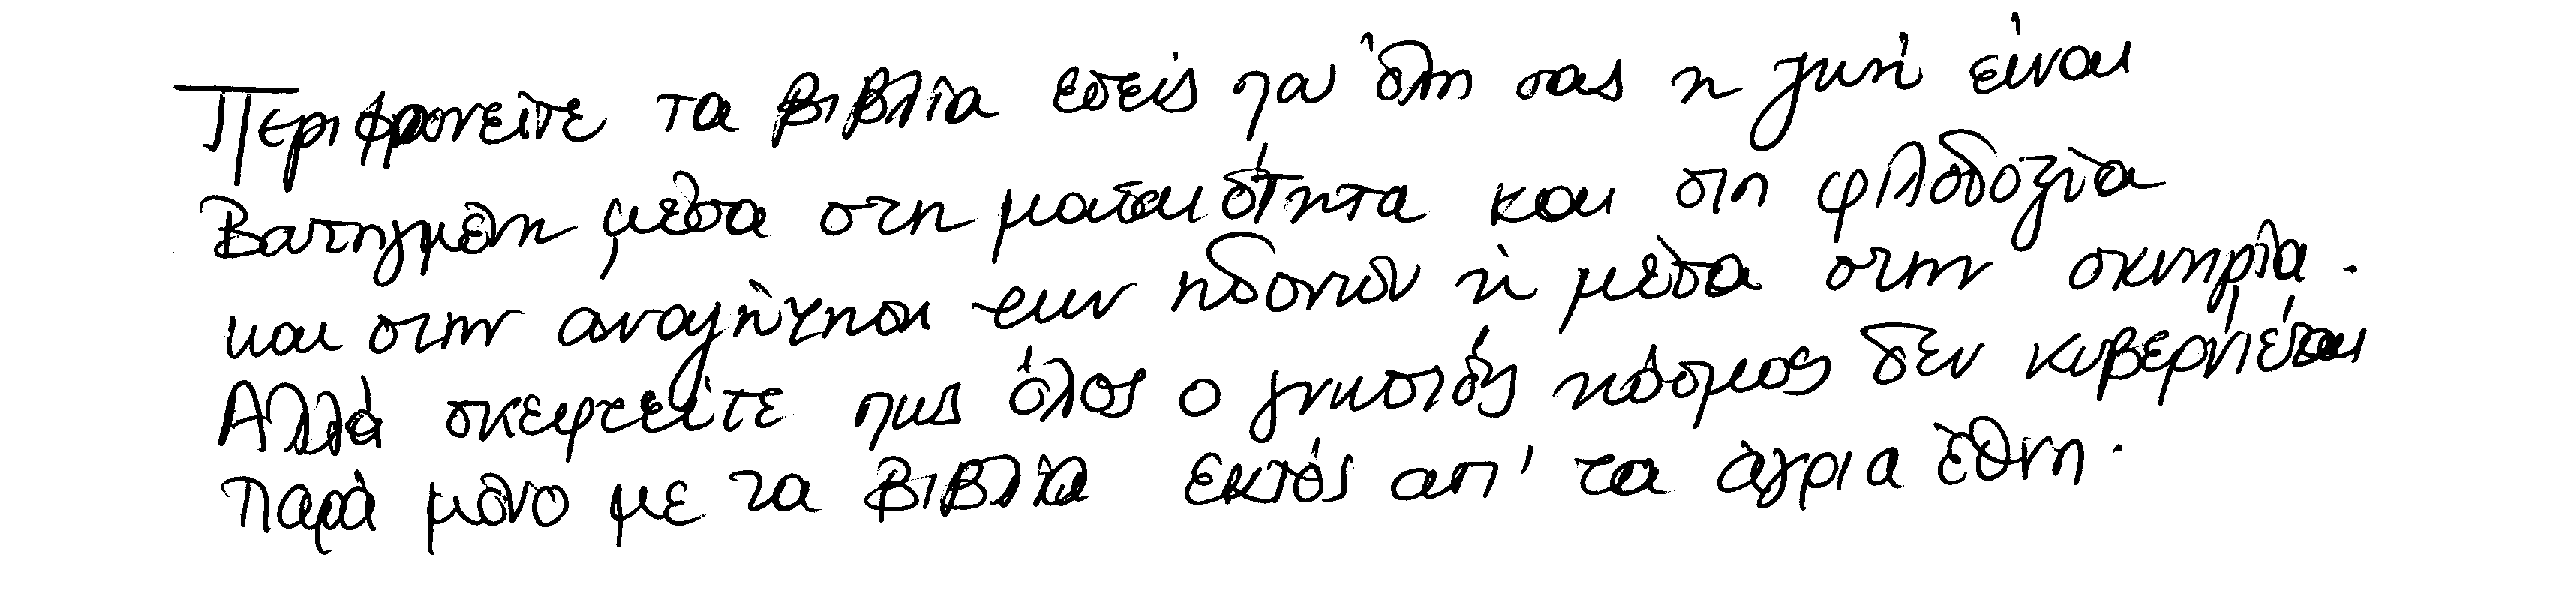 Περιφρονείτε τα βιβλία εσείς πα όλη σας η ζωή είναι
Βατηγμένη μέσα στη ματαιότητα και στη φιλοδοξία
και στην αναζήτηση των ηδονών ή μέσα στην οκνηρία.
Αλλά σκεφτείτε πως όλος ο γνωστός κόσμος δεν κυβερνιέται
παρά μόνο με τα βιβλία εκτός απ' τα άγρια έθνη.